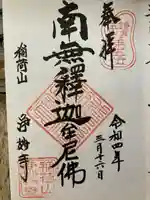 奉拝
南無釋迦牟尼佛
令和四年
三月十六日
稲荷山
浄妙寺